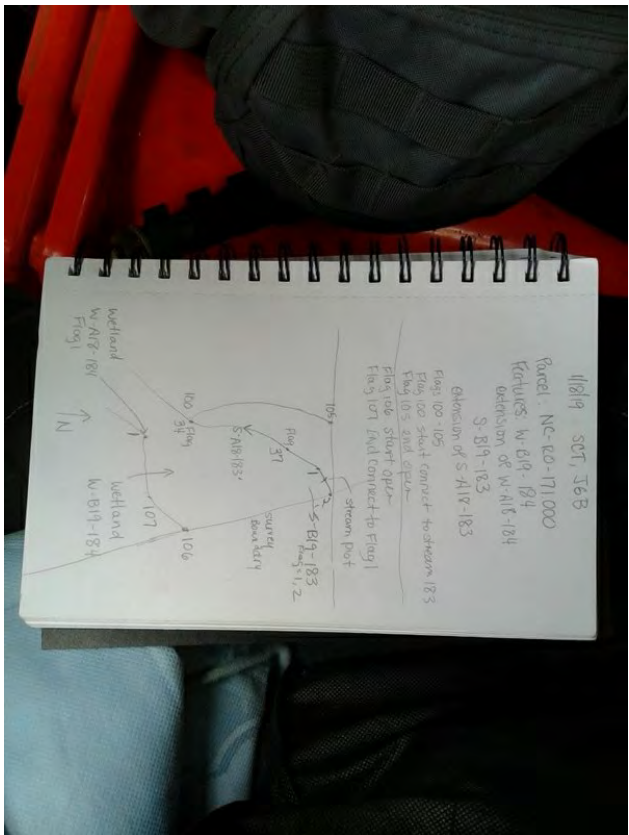 1/8/19 SCT, JGB
Parcel: NC-RO-171.000
Features: W-B19-184
extension of W-A18-184
S-B19-183
extension of S-A18-183
Flags 100-105
Flag 100 start connect to stream 183
Flag 105 end open
Flag 106 start open
Flag 107 end connect to Flag 1
105
stream plot
2
1
S-B19-183
Flags 1, 2
Flag
37
survey
boundary
S-A18-183
100
Flag
34
Wetland
W-A18-184
Flag 1
1
107
106
Wetland
W-B19-184
N